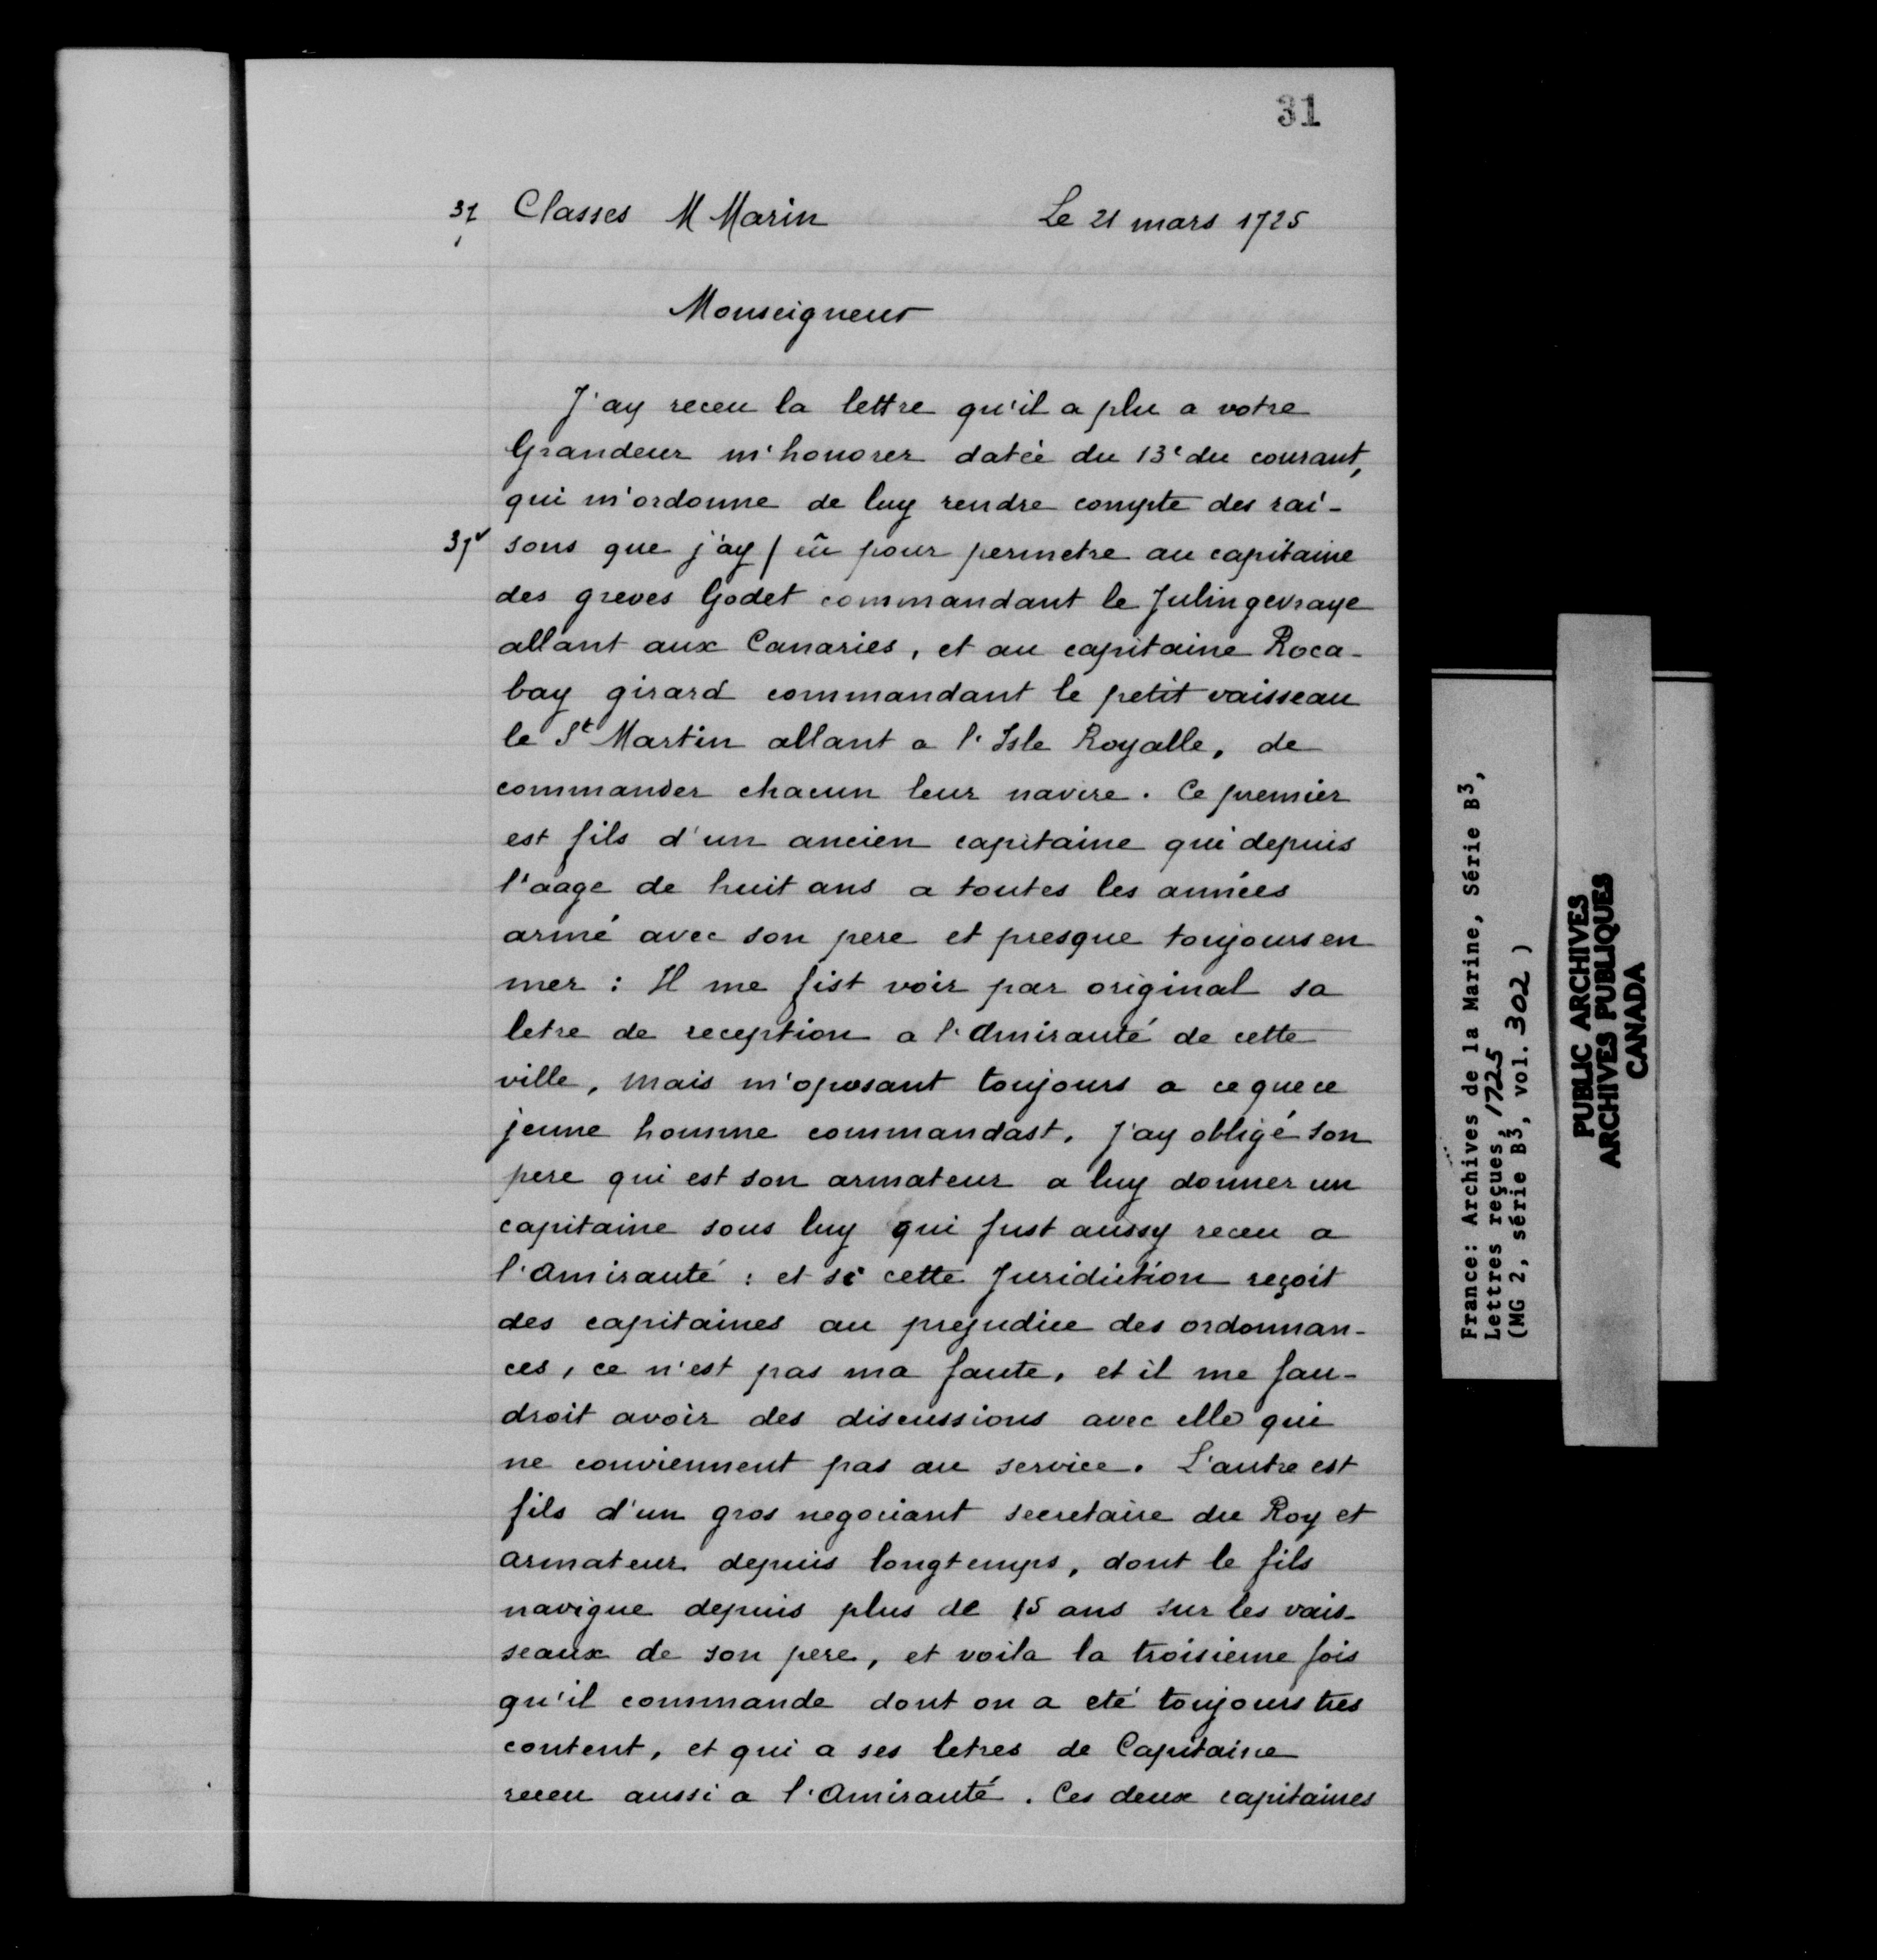 31
37 Classes M Marin Le 21 mars 1725
Monseigneur
J'ay receu la lettre qu'il a plu a votre
Grandeur m'honorer datée du 13e du courant,
qui m'ordonne de luy rendre compte des rai-
37v sons que j'ay / eü pour permetre au capitaine
des greves Godet commandant le Julingevraye
allant aux Canaries, et au capitaine Roca-
bay girard commandant le petit vaisseau
le St Martin allant a l'Isle Royalle, de
commander chacun leur navire. Ce premier
est fils d'un ancien capitaine qui depuis
l'aage de huit ans a toutes les années
armé avec son pere et presque toujours en
mer : Il me fist voir par original sa
letre de reception a l'Amirauté de cette
ville, mais m'oposant toujours a ce que ce
jeune homme commandast, j'ay obligé son
pere qui est son armateur a luy donner un
capitaine sous luy qui fust aussy receu a
l'Amirauté : et si cette Juridiction reçoit
des capitaines au prejudice des ordonnan-
ces, ce n'est pas ma faute, et il me fau-
droit avoir des discussions avec elle qui
ne conviennent pas au service. L'autre est
fils d'un gros negociant secretaire du Roy et
armateur depuis longtemps, dont le fils
navigue depuis plus de 15 ans sur les vais-
seaux de son pere, et voila la troisieme fois
qu'il commande dont on a eté toujours tres
content, et qui a ses letres de Capitaine
receu aussi a l'Amirauté. Ces deux capitaines
France: Archives de la Marine, Série B3,
Lettres reçues, 1725
(MG 2, série B3, vol. 302)
PUBLIC ARCHIVES
ARCHIVES PUBLIQUES
CANADA